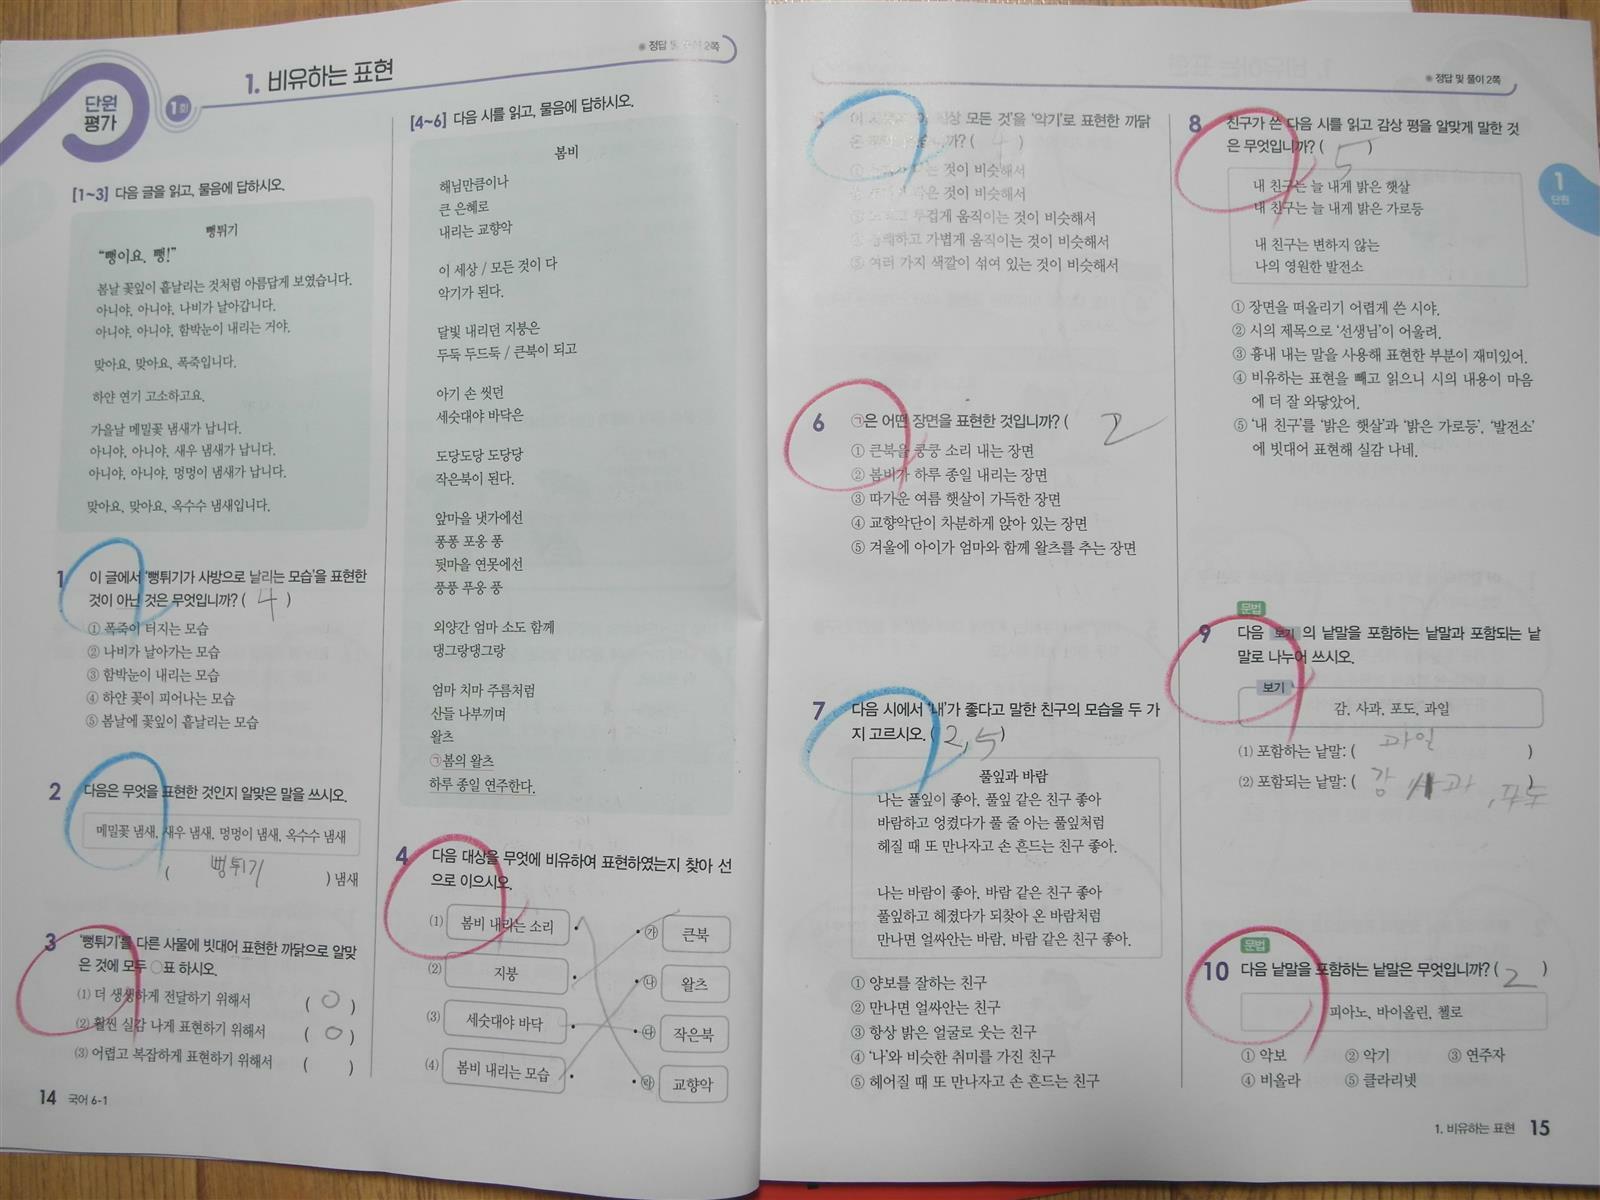 단원
평가
1회
1. 비유하는 표현
정답 및 2쪽
[1~3] 다음 글을 읽고, 물음에 답하시오.
뻥튀기
“뻥이요, 뻥!”
봄날 꽃잎이 흩날리는 것처럼 아름답게 보였습니다.
아니야, 아니야, 나비가 날아갑니다.
아니야, 아니야, 함박눈이 내리는 거야.
맞아요, 맞아요, 폭죽입니다.
하얀 연기 고소하고요.
가을날 메밀꽃 냄새가 납니다.
아니야, 아니야, 새우 냄새가 납니다.
아니야, 아니야, 멍멍이 냄새가 납니다.
맞아요, 맞아요, 옥수수 냄새입니다.
1 이 글에서 ‘뻥튀기가 사방으로 날리는 모습’을 표현한
것이 아닌 것은 무엇입니까? ( 4 )
① 폭죽이 터지는 모습
② 나비가 날아가는 모습
③ 함박눈이 내리는 모습
④ 하얀 꽃이 피어나는 모습
⑤ 봄날에 꽃잎이 흩날리는 모습
2 다음은 무엇을 표현한 것인지 알맞은 말을 쓰시오.
메밀꽃 냄새, 새우 냄새, 멍멍이 냄새, 옥수수 냄새
( 뻥튀기 ) 냄새
3 ‘뻥튀기’를 다른 사물에 빗대어 표현한 까닭으로 알맞
은 것에 모두 ○표 하시오.
(1) 더 생생하게 전달하기 위해서 ( O )
(2) 훨씬 실감 나게 표현하기 위해서 ( O )
(3) 어렵고 복잡하게 표현하기 위해서 ( )
14 국어 6-1
[4~6] 다음 시를 읽고, 물음에 답하시오.
봄비
해님만큼이나
큰 은혜로
내리는 교향악
이 세상 / 모든 것이 다
악기가 된다.
달빛 내리던 지붕은
두둑 두드둑 / 큰북이 되고
아기 손 씻던
세숫대야 바닥은
도당도당 도당당
작은북이 된다.
앞마을 냇가에선
퐁퐁 포옹 퐁
뒷마을 연못에선
풍풍 푸웅 풍
외양간 엄마 소도 함께
댕그랑댕그랑
엄마 치마 주름처럼
산들 나부끼며
왈츠
㉠봄의 왈츠
하루 종일 연주한다.
4 다음 대상을 무엇에 비유하여 표현하였는지 찾아 선
으로 이으시오.
(1) 봄비 내리는 소리 • • ㉮ 큰북
(2) 지붕 • • ㉯ 왈츠
(3) 세숫대야 바닥 • • ㉰ 작은북
(4) 봄비 내리는 모습 • • ㉱ 교향악
정답 및 풀이 2쪽
5 이 세상 모든 것’을 ‘악기’로 표현한 까닭
은 무엇입니까? ( 4 )
것이 비슷해서
것이 비슷해서
③ 무겁게 움직이는 것이 비슷해서
④ 하고 가볍게 움직이는 것이 비슷해서
⑤ 여러 가지 색깔이 섞여 있는 것이 비슷해서
6 ㉠은 어떤 장면을 표현한 것입니까? ( 2
① 큰북을 쿵쿵 소리 내는 장면
② 봄비가 하루 종일 내리는 장면
③ 따가운 여름 햇살이 가득한 장면
④ 교향악단이 차분하게 앉아 있는 장면
⑤ 겨울에 아이가 엄마와 함께 왈츠를 추는 장면
7 다음 시에서 ‘내’가 좋다고 말한 친구의 모습을 두 가
지 고르시오. ( 2, 5 )
풀잎과 바람
나는 풀잎이 좋아, 풀잎 같은 친구 좋아
바람하고 엉켰다가 풀 줄 아는 풀잎처럼
헤질 때 또 만나자고 손 흔드는 친구 좋아.
나는 바람이 좋아, 바람 같은 친구 좋아
풀잎하고 헤졌다가 되찾아 온 바람처럼
만나면 얼싸안는 바람, 바람 같은 친구 좋아.
① 양보를 잘하는 친구
② 만나면 얼싸안는 친구
③ 항상 밝은 얼굴로 웃는 친구
④ ‘나’와 비슷한 취미를 가진 친구
⑤ 헤어질 때 또 만나자고 손 흔드는 친구
8 친구가 쓴 다음 시를 읽고 감상 평을 알맞게 말한 것
은 무엇입니까? ( 5 )
내 친구는 늘 내게 밝은 햇살
내 친구는 늘 내게 밝은 가로등
내 친구는 변하지 않는
나의 영원한 발전소
① 장면을 떠올리기 어렵게 쓴 시야.
② 시의 제목으로 ‘선생님’이 어울려.
③ 흉내 내는 말을 사용해 표현한 부분이 재미있어.
④ 비유하는 표현을 빼고 읽으니 시의 내용이 마음
에 더 잘 와닿았어.
⑤ ‘내 친구’를 ‘밝은 햇살’과 ‘밝은 가로등’, ‘발전소’
에 빗대어 표현해 실감 나네.
1
단원
문법
9 다음 보기 의 낱말을 포함하는 낱말과 포함되는 낱
말로 나누어 쓰시오.
보기
감, 사과, 포도, 과일
(1) 포함하는 낱말: ( 과일 )
(2) 포함되는 낱말: ( 감 사과, 포도
문법
10 다음 낱말을 포함하는 낱말은 무엇입니까? ( 2 )
피아노, 바이올린, 첼로
① 악보 ② 악기 ③ 연주자
④ 비올라 ⑤ 클라리넷
1. 비유하는 표현 15